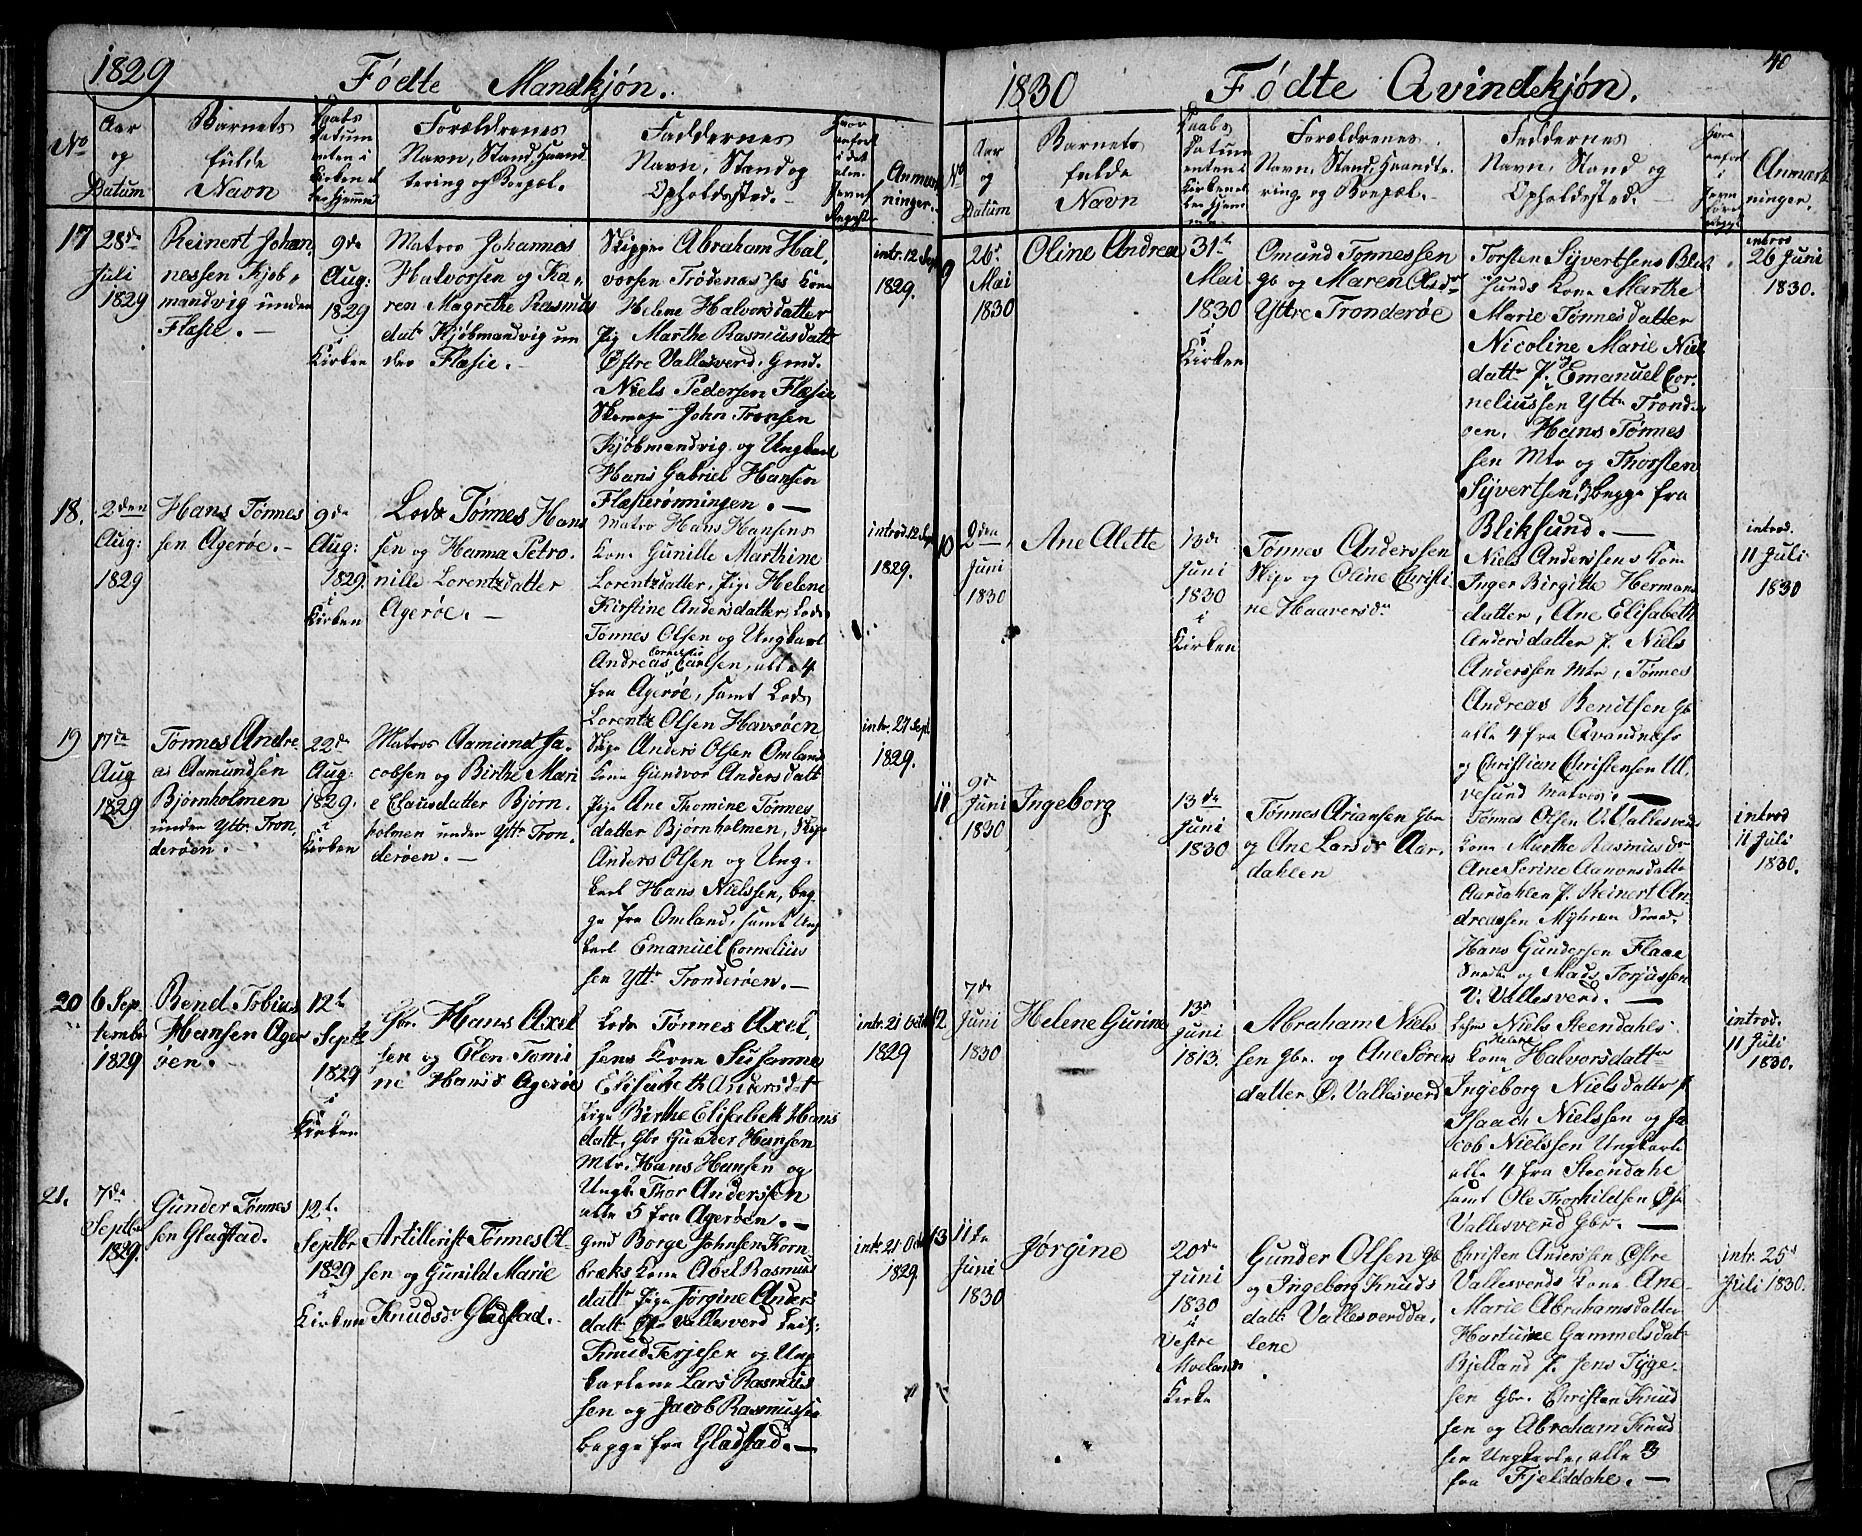 1829
Fødte Mandkjøn.
No
Aar
og
Datum
Barnets
fulde
Navn
Daabs
Datum
enten i
Kirken el
Forældrenes
Navn, Stand, Haand
tering og Boepæl.
Faddernes
Navn, Stand og
Opholdssted.
Hvor
anført
i det
alm.
Jevnf.
Regster
Anmærk
ninger.
17
28de
Juli
1829
Reinert Johan
nessen Kjøb-
mandvig under
Flæsie. —
9de
Aug:
1829
i
Kirken
Matros Johannes
Halvorsen og Ka-
ren Magrethe Rasmus
datr Kjøbmandvig un
der Flæsie. —
Skipper Abraham Hal
vorsen Trødenæs hs Kone
Helene Halvorsdatter
Pig Marthe Rasmusdatt
Østre Vallesverd. Gmd.
Niels Pedersen Flæsie
John Tronsen
Kjøbmandvig og Ungkarl
Hans Gabriel Hansen
Flæsierønningen. —
intr. 12 Sept
1829.
18.
2den
Aug:
1829
Hans Tønnes
sen Agerøe. —
9de
Aug:
1829.
i
Kirken
Lods Tønnes Hans
sen og Hanna Petro-
nille Lorentzdatter
Agerøe. —
Matro Hans Hansens
Kone Gunille Marthine
Lorentzdatter, Pige Helene
Kirstine Andersdatter, Lods
Tønnes Olsen og Ungkarl
Andreas Cornelius Carlsen, alle 4
fra Agerøe, samt Lods
Lorentz Olsen Havsøen
introd. 12 Sep
1829.
19
17de
Aug
1829
Tønnes Andre
as Aamundsen
Bjørnholmen
under Yttr Tron,
derøen. —
22de
Aug:
1829.
i
Kirken
Matros Aamund Ja-
cobsen og Birthe Mari
e Clausdatter Bjørn-
holmen under Yttr Tron,
derøen. —
Skipr Anders Olsen Omland
Kone Gundvor Andersdatt
Pige Ane Thomine Tønnes
datter Bjørnholmen, Skipr
Anders Olsen og Ung-
karl Hans Nielsen, beg
ge fra Omland, samt Ung
karl Emanuel Cornelius
sen Yttr Tronderøen. —
intr. 27 Sept
1829.
20
6 Sep
tembr
1829
Bend Tobias
Hansen Ager
øen. —
12te
Septbr
1829
i
Kirken
Gbr. Hans Axel
sen og Elen Tomi
ne Hansdr Agerøe
Lods Tønnes Axel,
sens Kone Susanne
Elisabeth Andersdat
Pige Birthe Elisabeth Hans
datt, Gbr Gunder Hansen
Mtr. Hans Hansen og
Ungk. Thor Anderssen
alle 5 fra Agerøen. —
intr. 21 Octr
1829
21.
7de
Septbr
1829.
Gunder Tønnes
sen Gladstad.
12t.
Septbr
1829
i
Kirken
Artillerist Tønnes Ol-
sen og Gunild Marie
Knudsdr Gladstad. —
Gmd Borge Johnsen Korn
bræks Kone Abel Rasmus
datr Pige Jørgine Anders
datt Østr Vallesverd
Knud Terjesen og Ung
karlene Lars Rasmus
sen og Jacob Rasmussen
begge fra Gladstad. —
intr. 21 Octr
1829.
1830
Fødte Qvindekjøn.
40
No
Aar
og
Datum
Barnets
fulde
Navn
Daabs
Datum
enten i
Kirken el
Forældrenes
Navn, Stand, Haandte
ring og Boepæl. —
Faddernes
Navn, Stand og
Opholdssted. —
Anmærk
ninger.
9
26de
Mai
1830
Oline Andrea
31te
Mai
1830
i
Kirken
Omund Tønnessen
Gb og Maren Olsdr
Yttre Tronderøe
Torsten Syvertsens Blik
sunds Kone Marthe
Marie Tønnesdatter
Nicoline Marie Niels
datter P. og Emanuel Cor-
neliussen Yttr Tronder
øen, Hans Tønnes
sen Mtr og Thorsten
Syvertsen, begge fra
Bliksund. —
introd
26 Juni
1830.
10
2den
Juni
1830
Ane Alette
13de
Juni
1830
i
Kirken
Tønnes Anderssen
Skipr og Oline Christi
ne Haaversdr
Niels Anderssens Kone
Inger Birgitte Hermans
datter, Ane Elisabeth
Andersdatter P. Niels
Anderssen Mtr, Tønnes
Andreas Bendtsen Gb
alle 4 fra Qvandnæs
og Christian Christensen Ul,
vesund Matros. —
introd.
11 Juli
1830
11
9d
Juni
1830
Ingeborg
13de
Juni
1830
Tønnes Ariansen Gbr
og Ane Larsdr Aar-
dahlen
Tønnes Olsen V. Vallesverds
Kone Marthe Rasmusdr
Ane Serine Aanonsdatter
Aardahlen P. Reinert An
dreassen Myhren
Hans Gundersen Flaae
og Mads Torjussen
V. Vallesverd. —
introd
11 Juli
1830.
12
7de
Juni
1830
Helene Gurine
13de
Juni
1813.
Abraham Niels
sen Gbr. og Ane Sørens
datter Ø. Vallesverd
Niels Steendahls
Kone Helene Halvorsdatter
Ingeborg Nielsdatter P.
Isaach Nielssen og Ja
cob Nielssen Ungkarle
alle 4 fra Steendahl
samt Ole Thorkildsen Øst
Vallesverd Gbr. —
introd.
11 Juli
1830.
13
11te
Juni
1830
Jørgine
20de
Juni
1830
i
Vestre
Moelands
Kirke
Gunder Olsen Gb
og Ingeborg Knuds
datr Vallesverdda,
lene
Christen Anderssen Østre
Vallesverds Kone Ane
Marie Abrahamsdatter
Hartvine Gammelsdatr
Bjelland P. Jens Tyge-
sen Gbr. Christen Knud
sen og Abraham Knud
sen Ungkarle, alle 3
fra Fjelddahl. —
intr. 25de
Juli 1830.